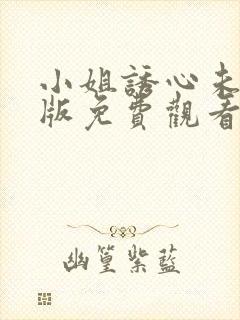 小姐誘心未
版免費觀看
幽篁紫藍